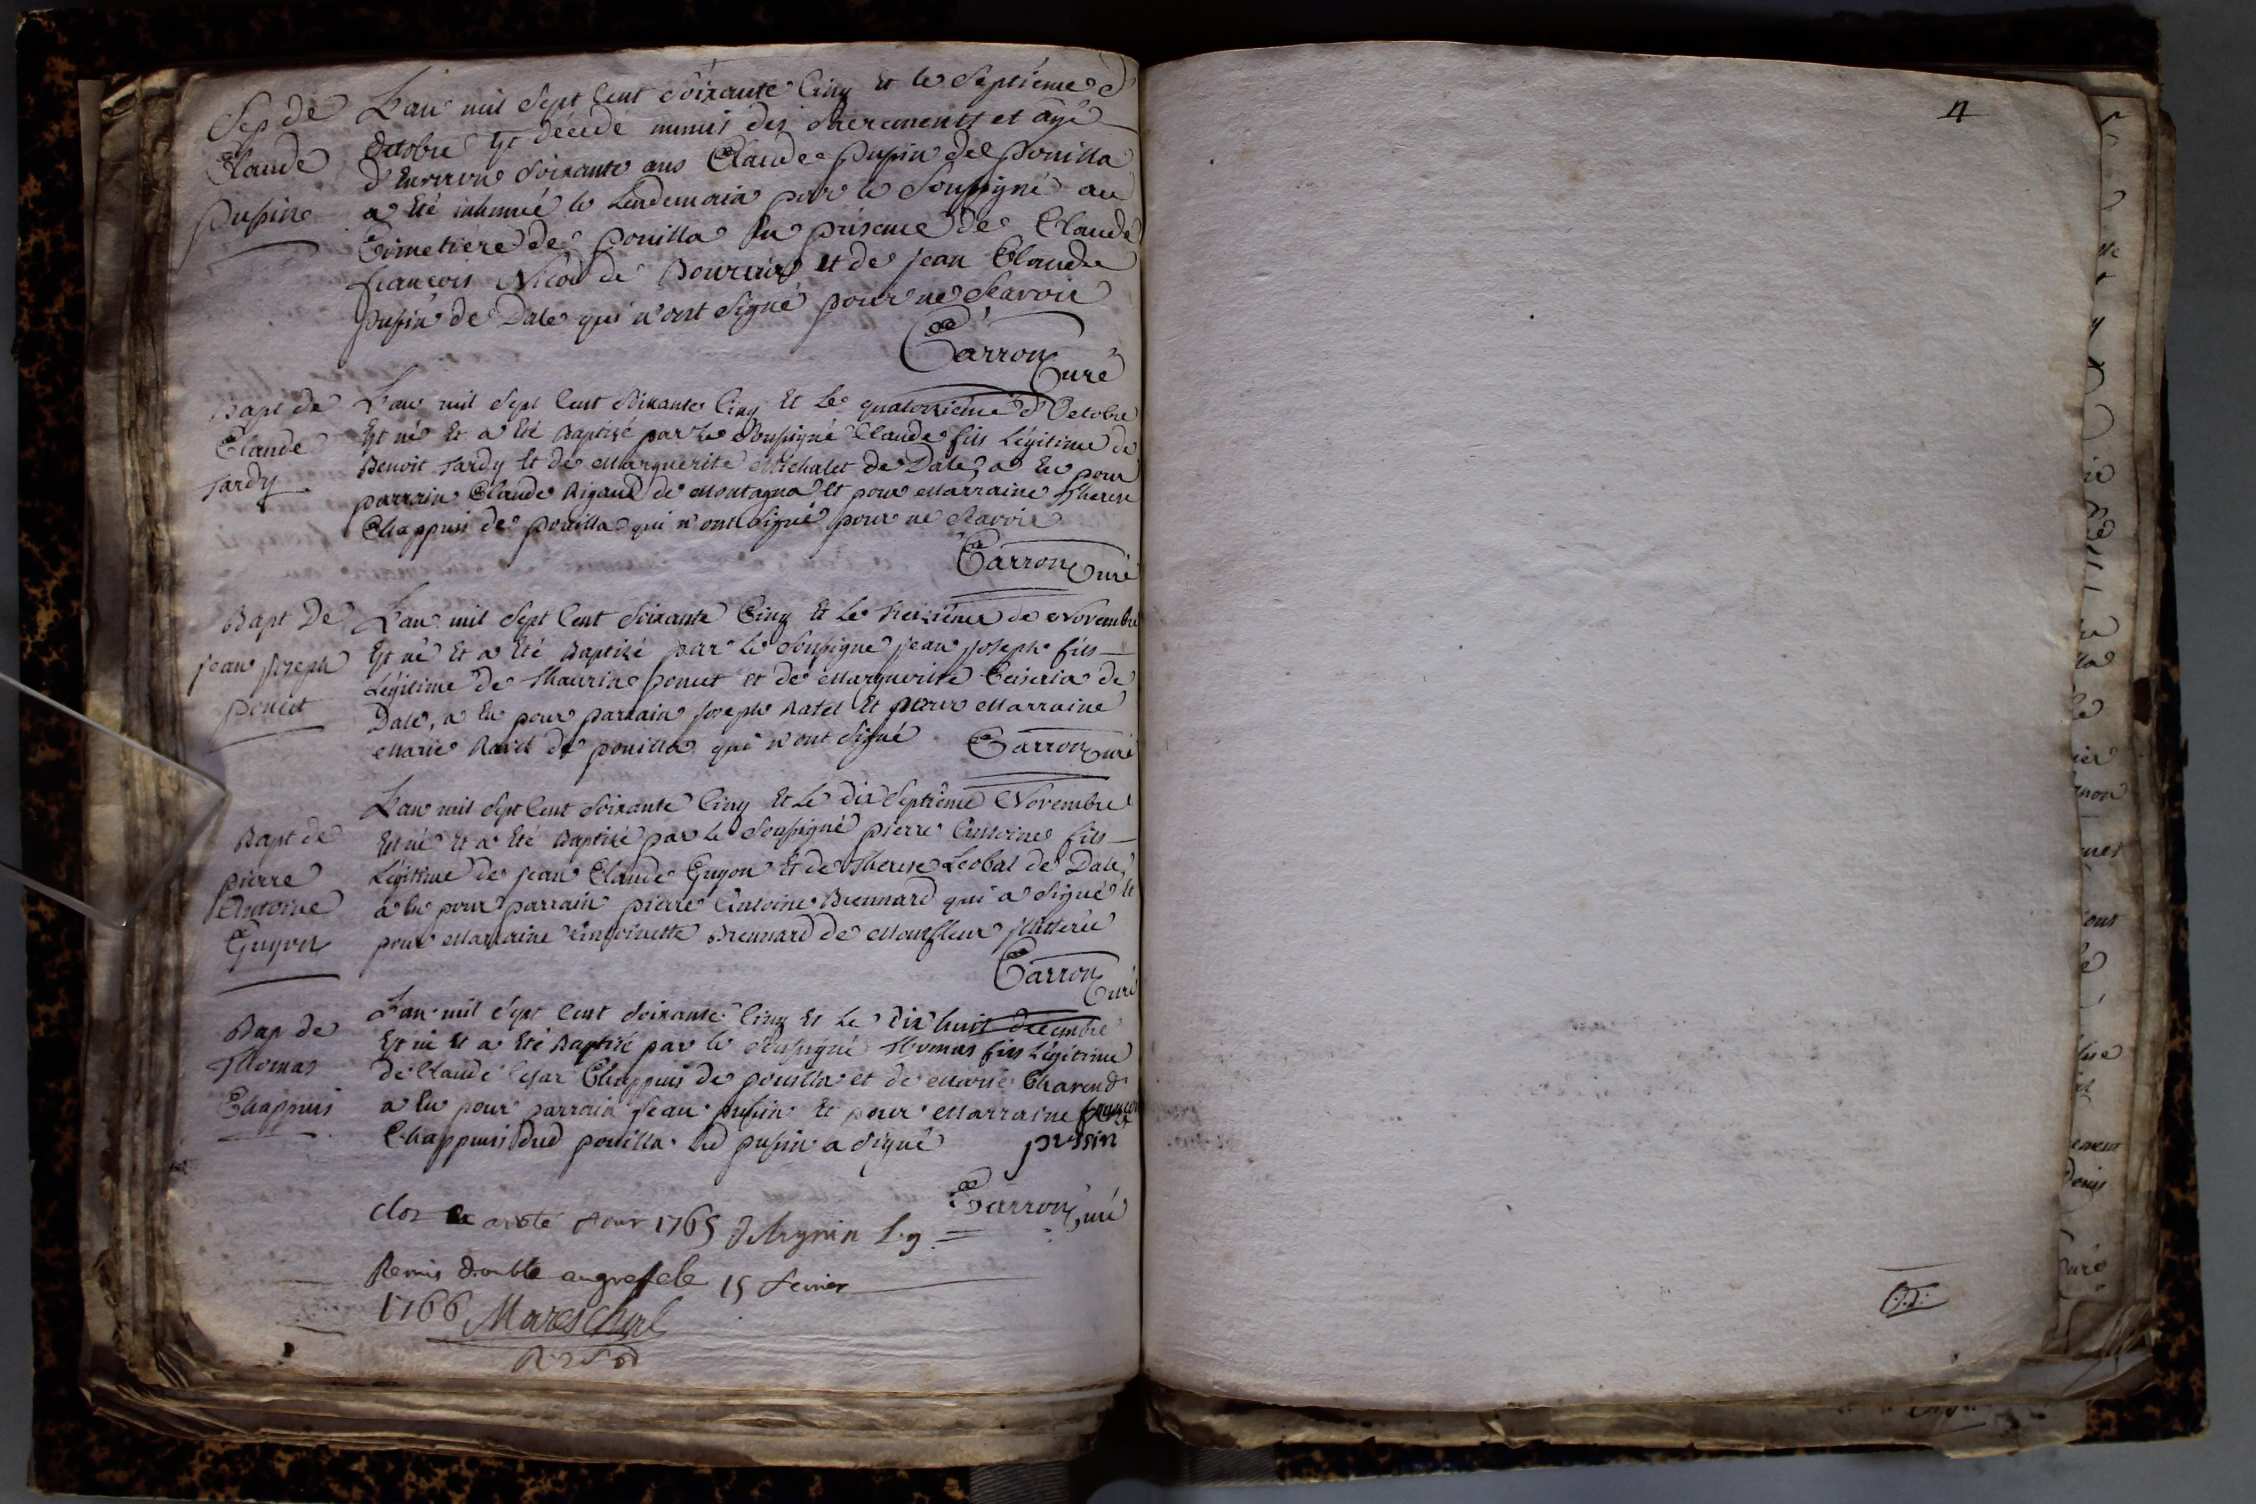 Sep de
Claude
Pupin
L'an mil Sept Cent Soixante Cinq Et le Septieme d'
Octobre Est décédé munis des Sacrements et agé
d'Environ Soixante ans Claude Pupin de Pouilla
a Eté inhumé le Lendemain par le Soussigné au
Cimetiére de Pouilla En présence de Claude
françois Nicod de et de Jean Claude
Pupin de Dale qui n'ont Signé pour ne Scavoir
Carron
Curé
Bapt de
Claude
Tardy
L'an mil Sept Cent Soixante Cinq Et Le quatorzième d'Octobre
Est né Et a Eté Baptizé par Le Soussigné Claude fils Légitime de
Benoit Tardy Et de Marguerite Michalet de Dale, a Eu pour
parrain Claude Rigaud de Montagna Et pour Marraine Therese
Chappuis de Pouilla qui n'ont Signé pour ne Scavoir
Carron Curé
Bapt De
Jean Joseph
Poncet
L'an mil Sept Cent Soixante Cinq Et Le treizième de Novembre
Est né Et a Eté Baptizé par Le Soussigné Jean Joseph fils
Légitime de Thaurin Poncet et de Marguerite de
Dale, a Eu pour parrain Joseph Ratel Et pour Marraine
Marie de Pouilla qui n'ont Signé Carron Curé
Bapt de
Pierre
Antoine
Guyon
L'an mil Sept Cent Soixante Cinq Et Le dix Septième Novembre
Est né Et a Eté Baptizé par Le Soussigné Pierre Antoine fils
Légitime de Jean Claude Guyon Et de Therese Leobal de Dale,
a Eu pour parrain Pierre Antoine Brennard qui a Signé Et
pour Marraine Antoinette Brennard de Monfleur illitérée
Carron
Curé
Bap de
Thomas
Chappuis
L'an mil Sept Cent Soixante Cinq Et Le dix huit decembre
Est né Et a Eté Baptizé par le Soussigné Thomas fils Légitime
de Claude Cesar Chappuis de Pouilla et de Marie
a Eu pour parrain Jean Pupin Et pour Marraine
Chappuis dud Pouilla Led Pupin a Signé pussin
Carron Curé
Clos et arreté pour 1765
Remis double au greffe le 15 fevrier
1766 Mareschal
4